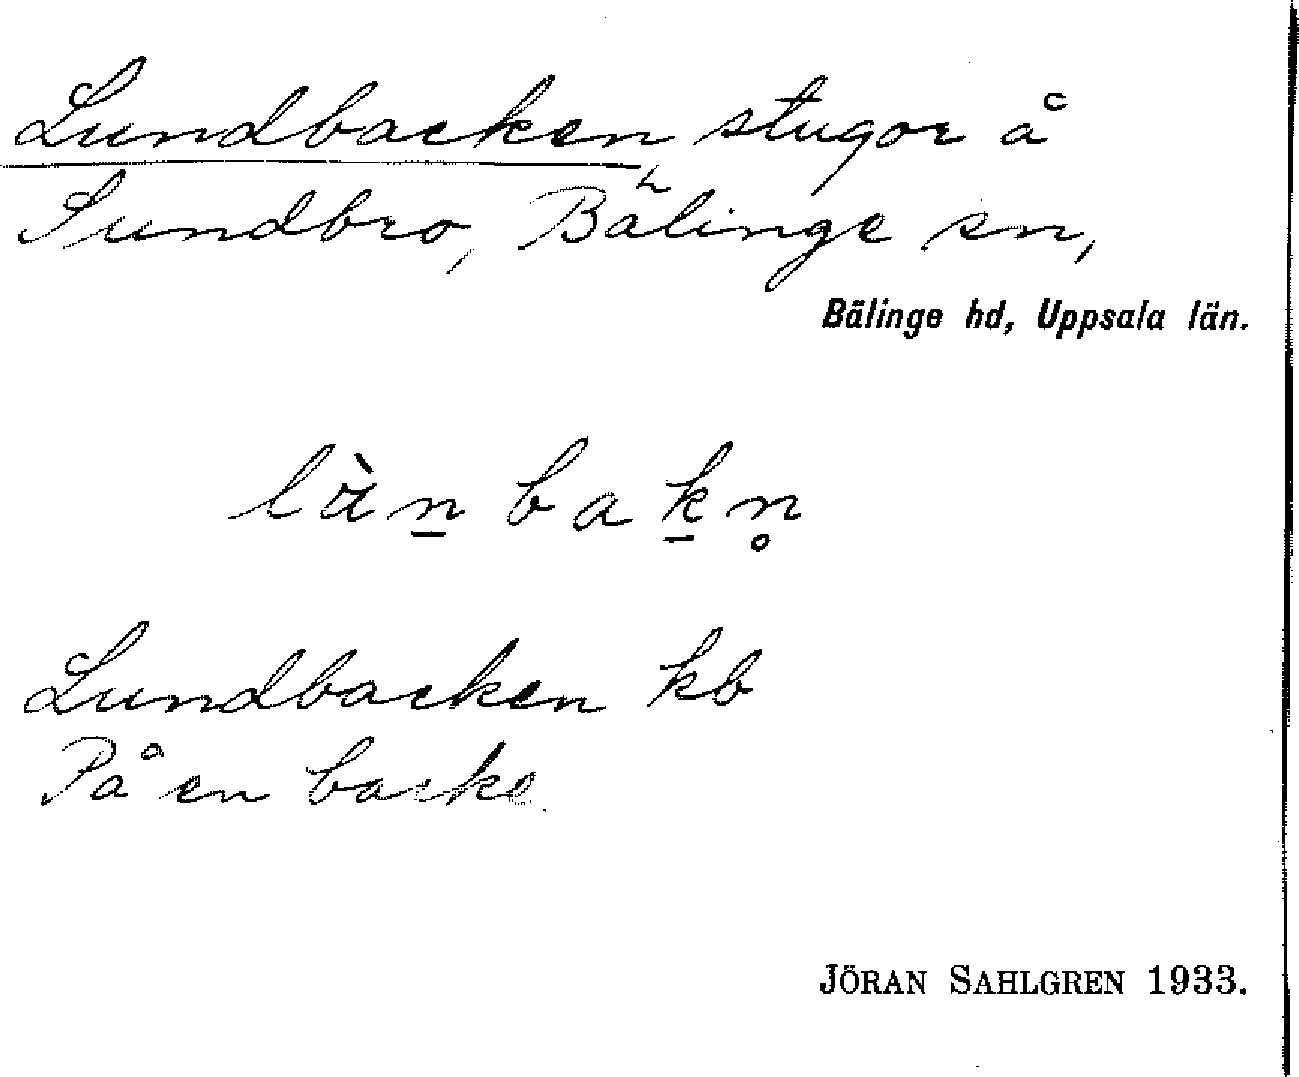 Lundbacken stugor å
Sundbro, Bälinge sn,
Bälinge hd, Uppsala län.
làn̲ b a k̲ n̥
Lundbacken kb
På en backe.
JÖRAN SAHLGREN 1933.